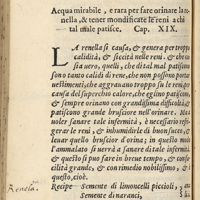 Acqua mirabile, e rara per fare orinare la re
nella, & tener mondificate le reni a chi
tal male patisce. Cap. XIX.
LA renella si causa, & genera per troppa
calidità, & siccità nelle reni, & che
sia vero, quelli, che di tal mal patiscono
sono tanto calidi di rene, che non possono
uestimenti, che aggrauano troppo su le rene
causa del superchio calore, che eglino patiscono
& orinano cose rosse, & con grandissima difficoltà
patiscono grande bruciore nell'orinare.
uoler sanare tale infermità, è necessario refrigerare
le reni, & inhumidirle di buon succo, &
leuar quello brusciore d'orina; in quello modo
l'ammalato si uerrà a sanare di tale infermità
& questo si puo fare in breue tempo, & con
cilità grande, & con rimedio nobilissimo,
questo è esso.
Renella.
Recipe Semente di limoncelli piccioli,
Semente di naranci,